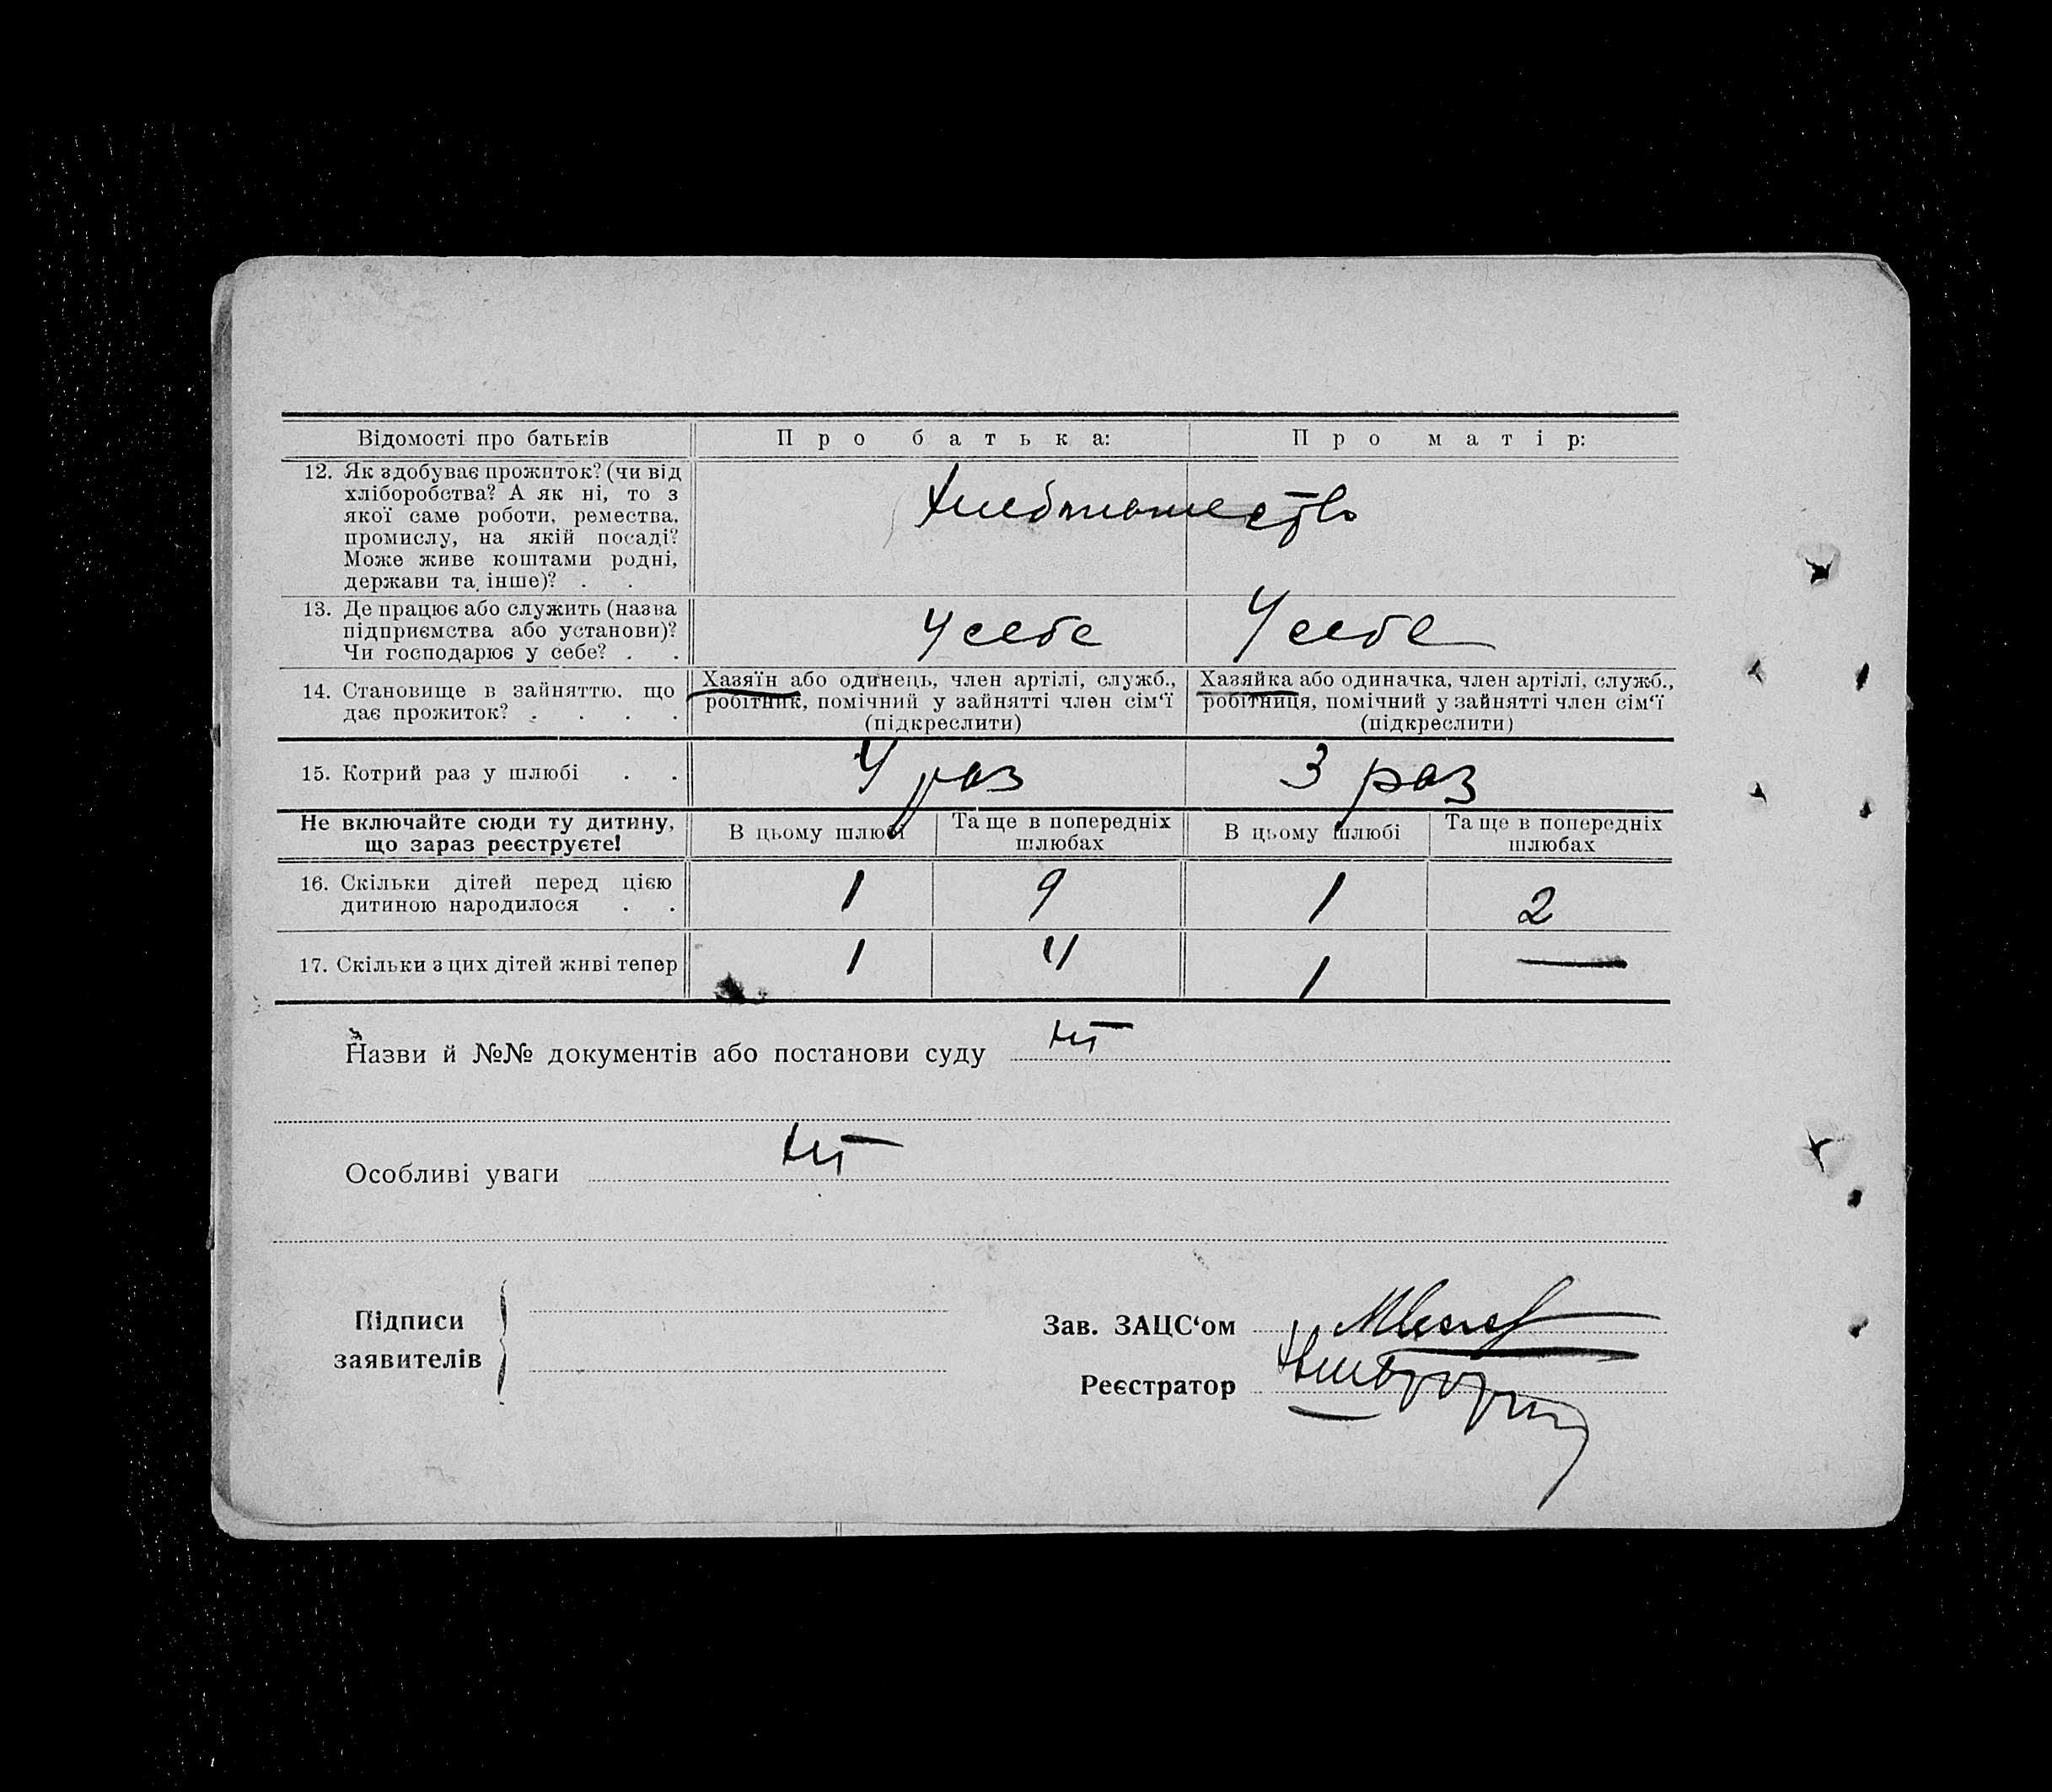 Відомості про батьків
Про батька:
Про матір:
12. Як здобуває прожиток? (чи від
хліборобства? А як ні, то з
якої саме роботи, ремества,
промислу, на якій посаді?
Може живе коштами родні,
держави та інше)? . .
Хлебпашество
13. Де працює або служить (назва
підприємства або установи)?
Чи господарює у себе? . .
У себе
У себе
14. Становище в зайняттю, що
дає прожиток? . . . .
Хазяїн або одинець, член артілі, служб.,
робітник, помічний у зайнятті член сім‘ї
(підкреслити)
Хазяйка або одиначка, член артілі, служб.,
робітниця, помічний у зайнятті член сім‘ї
(підкреслити)
15. Котрий раз у шлюбі . .
4 раз
3 раз
Не включайте сюди ту дитину,
що зараз реєструєте!
В цьому шлюбі
Та ще в попередніх
шлюбах
В цьому шлюбі
Та ще в попередніх
шлюбах
16. Скільки дітей перед цією
дитиною народилося . .
1
9
1
2
17. Скільки з цих дітей живі тепер
1
4
1
—
Назви й №№ документів або постанови суду
ні
Особливі уваги
ні
Підписи
заявителів
Зав. ЗАЦС‘ом
Реєстратор